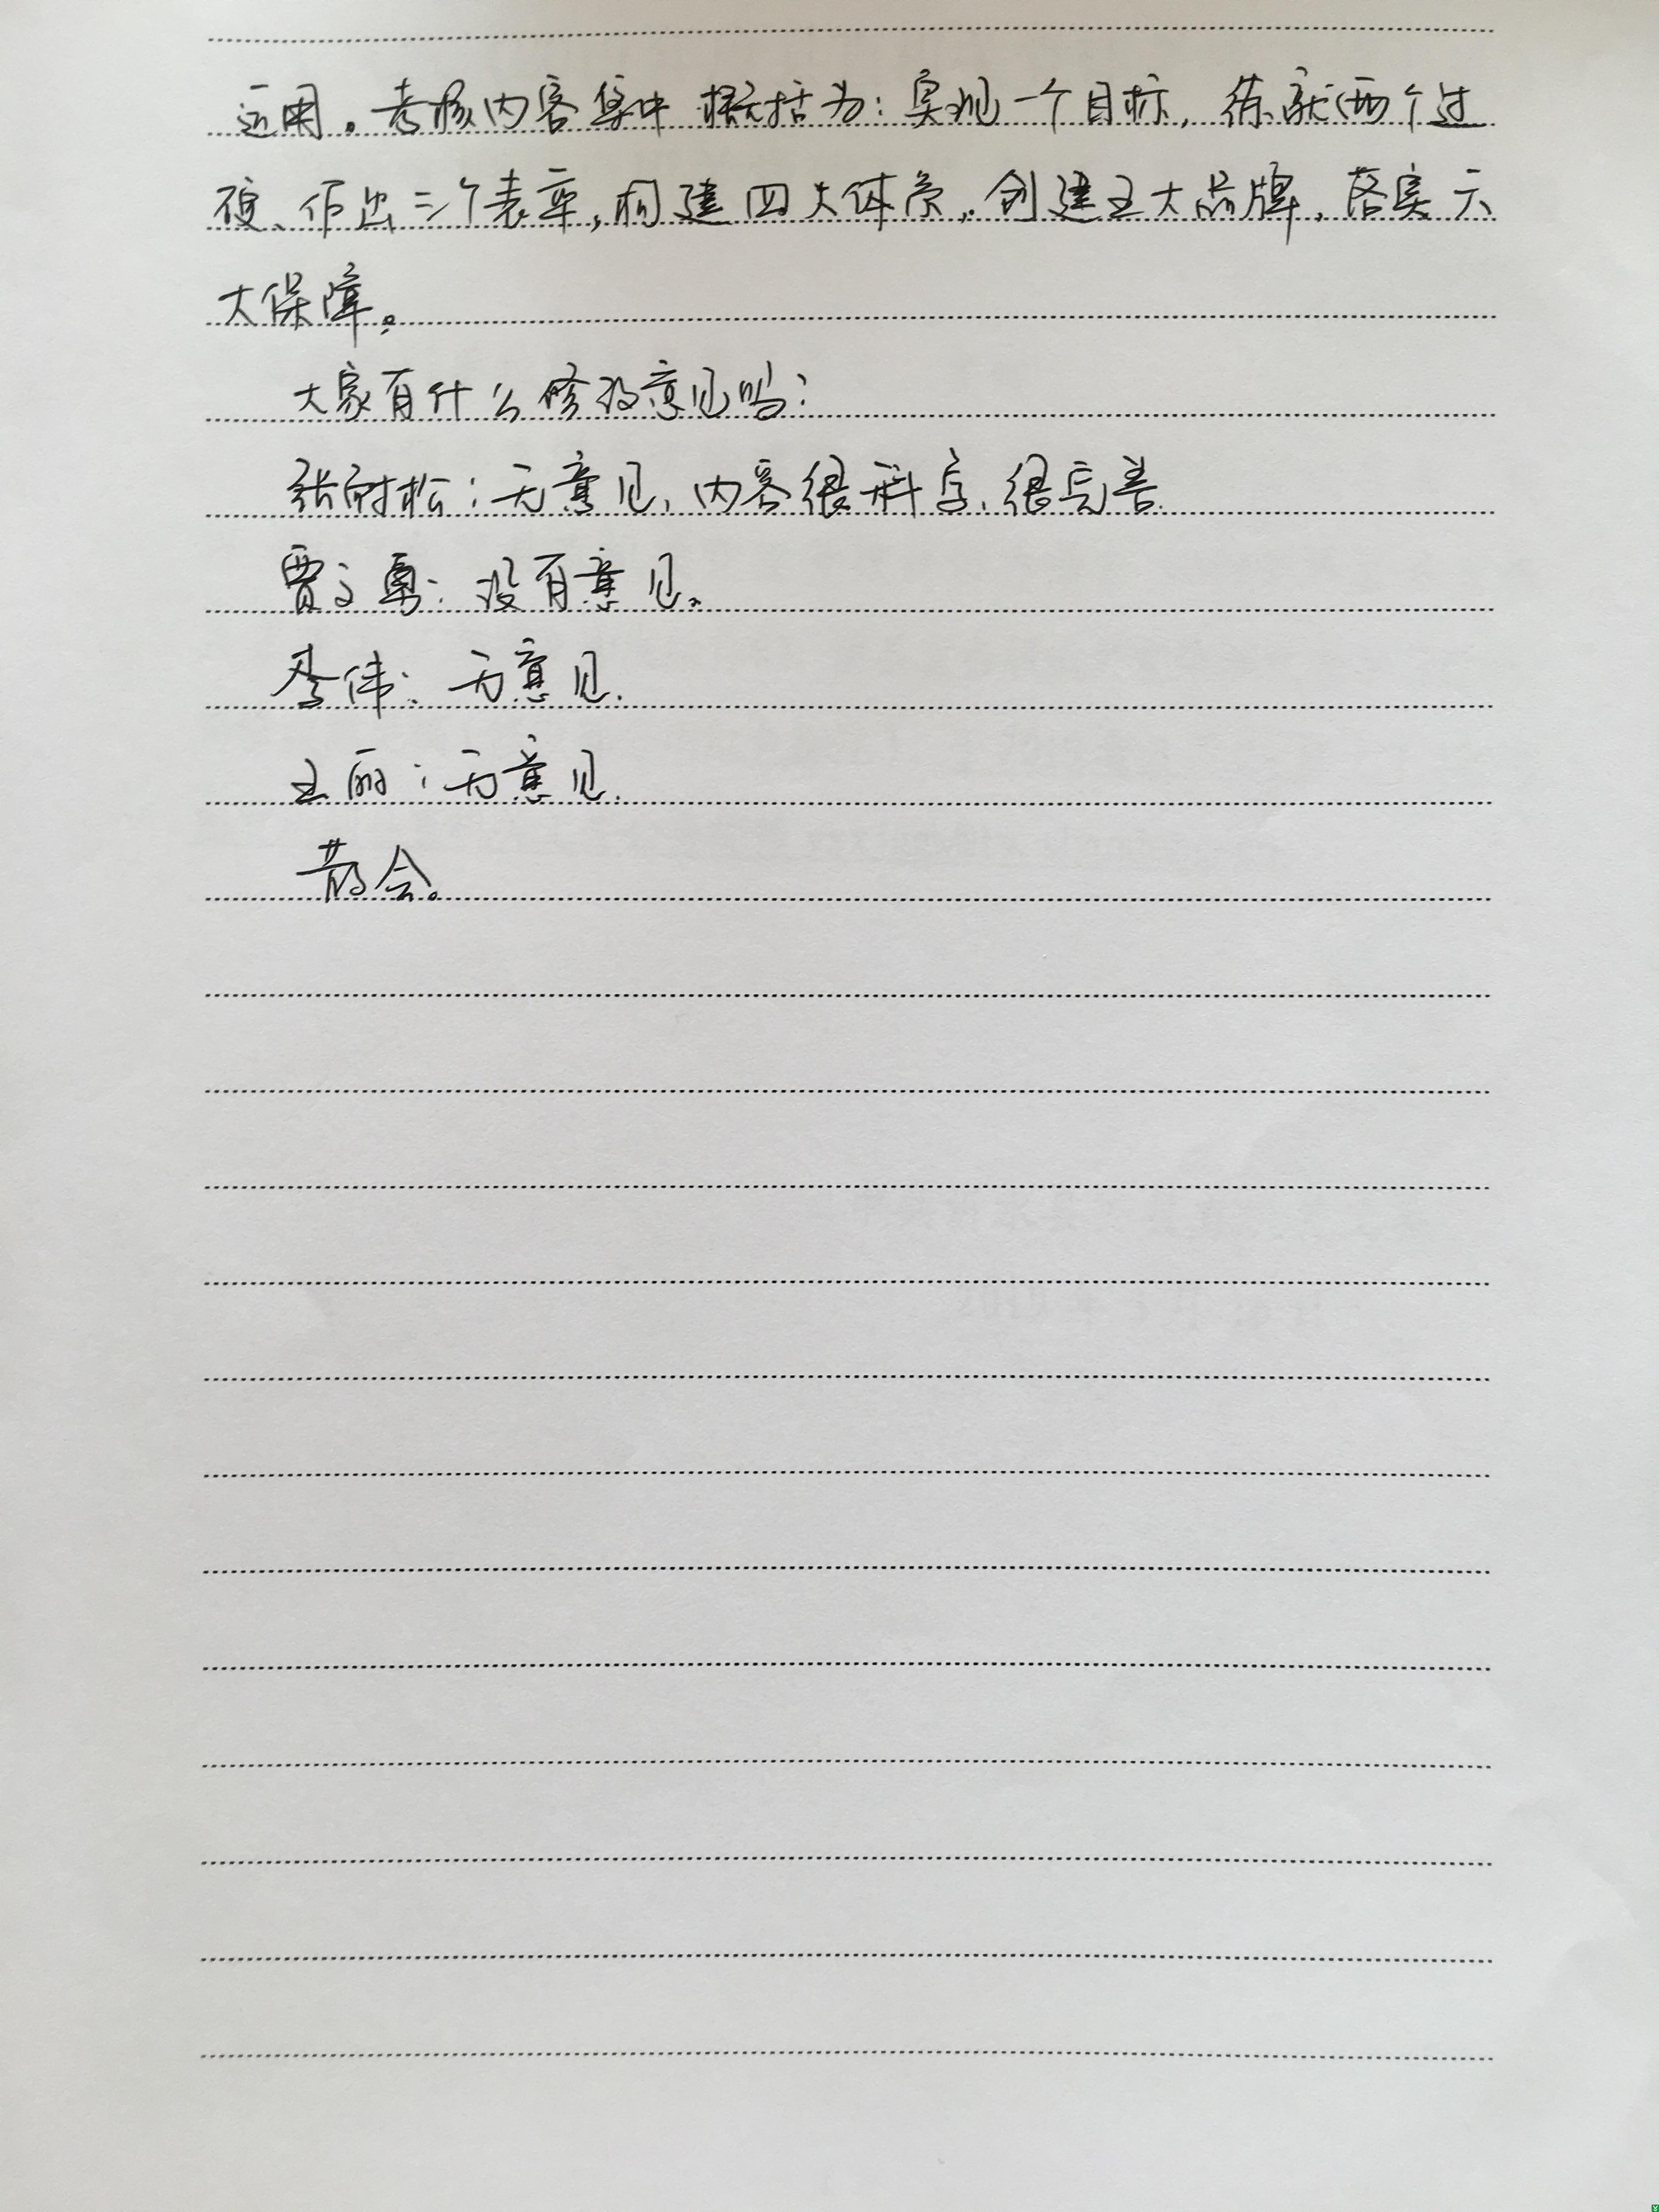 运用。考核内容集中概括为：实现一个目标，练就两个过
硬、作出三个表率，构建四大体系，创建五大品牌，落实六
大保障。
大家有什么修改意见吗？
张耐松：无意见，内容很科学、很完善.
贾文勇：没有意见。
李伟：无意见.
王丽：无意见.
散会。